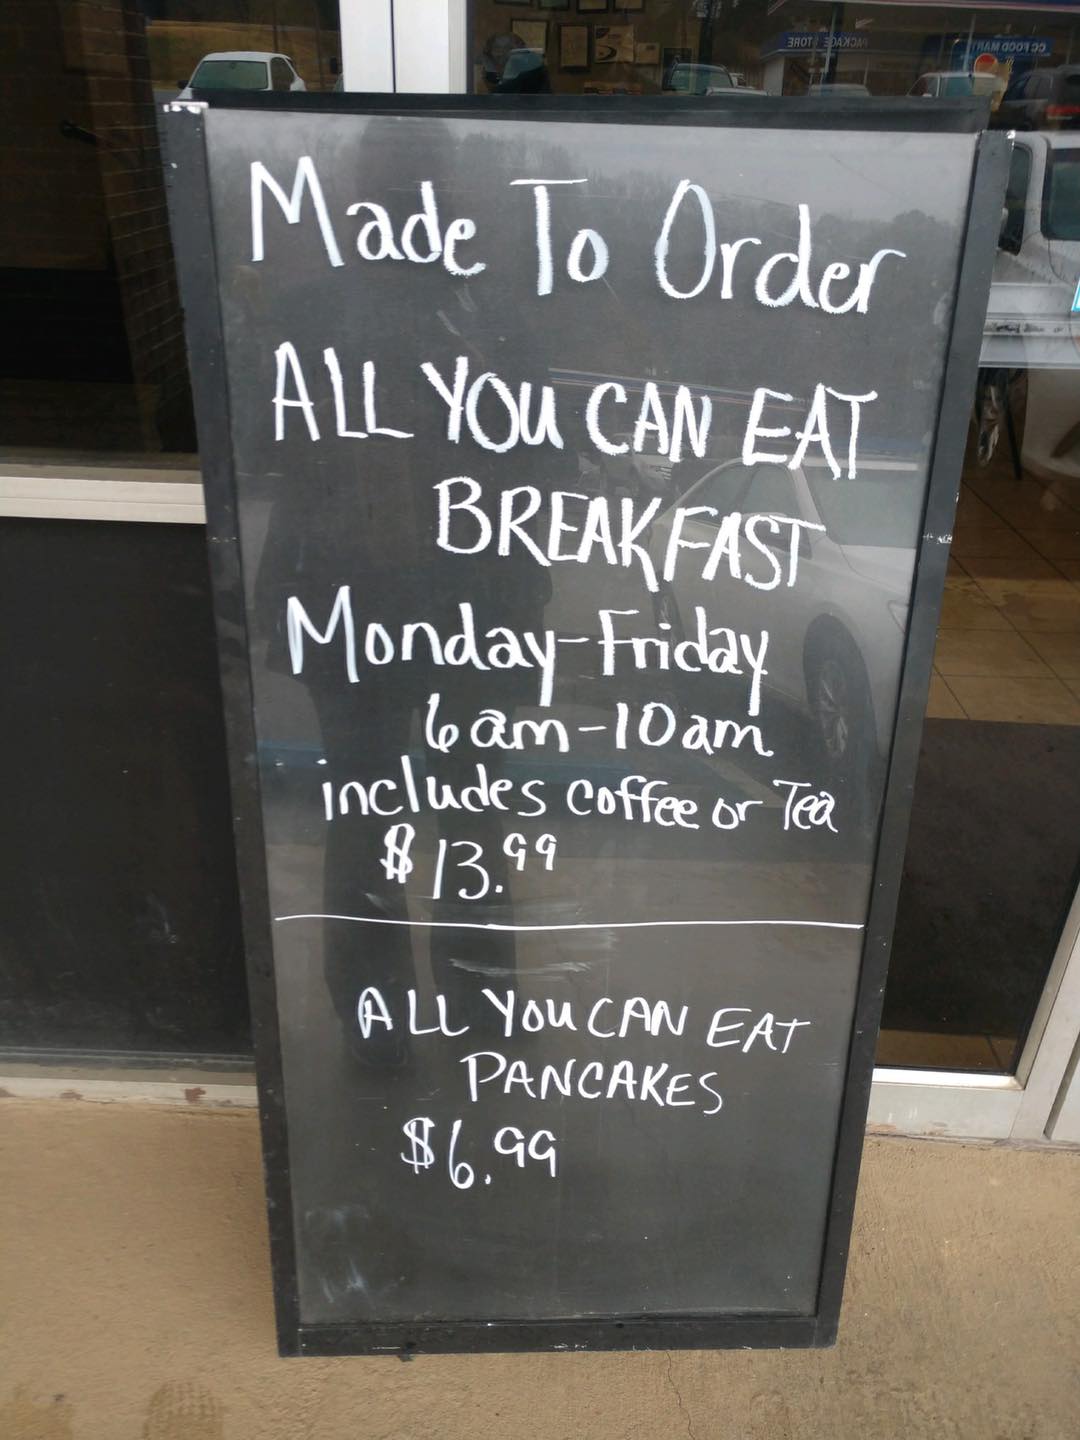 Made To Order
ALL YOU CAN EAT
BREAKFAST
Monday-Friday
6am-10am
includes coffee or Tea
$13.99
ALL YOU CAN EAT
PANCAKES
$6.99
PACKAGE STORE
CC FOOD MART